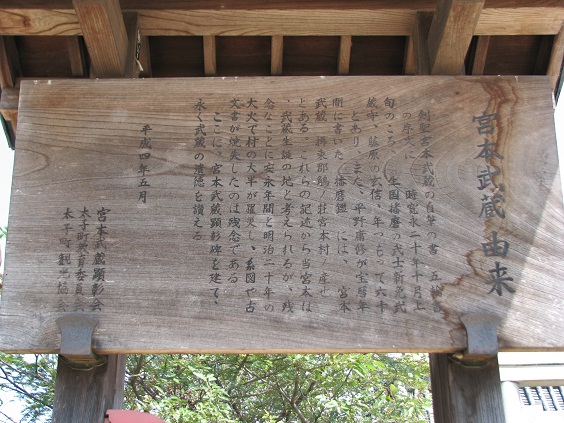 宮本武蔵 由来
剣聖宮本武蔵の直筆の書「五輪書」
の序文に「時寛永二十年十月上
旬のころ、生国播磨の武士新免武
蔵守、藤原の玄信、年つもって六十」
とあり、また、平野庸脩が宝暦年
間に書いた「播磨鑑」には、「宮本
武蔵、揖東郡鵤ノ荘宮本村ノ産也」
とある。これらの記述から当宮本は
、武蔵生誕の地と考えられるが、残
念なことに安永年間と明治二十年の
大火で村の大半が罹災し、系図や古
文書が焼失したのは残念である。
ここに、宮本武蔵顕彰碑を建て、
永く武蔵の遺徳を讃える。
平成四年五月
宮本武蔵顕彰会
太子町教育委員会
太子町観光協会